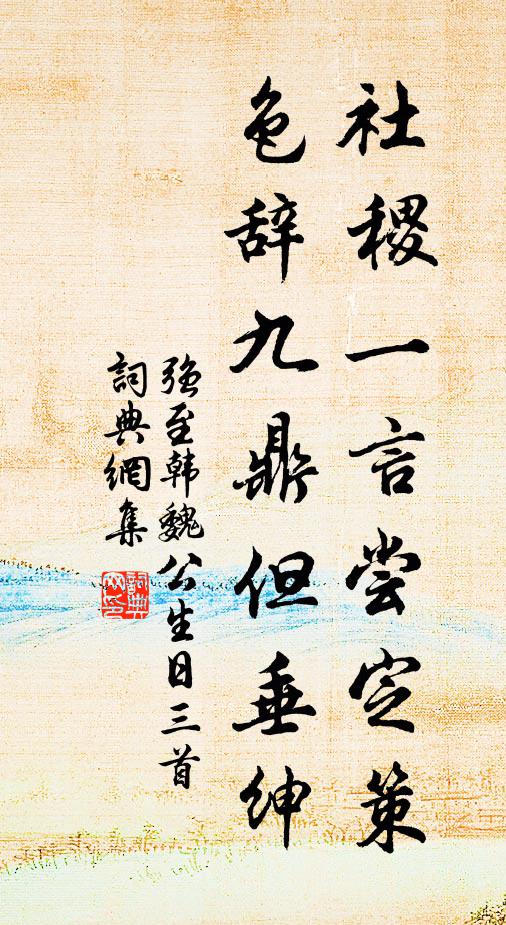 社稷一言尝定策
色辞九鼎但垂绅
强至韩魏公生日三首
詞典網集